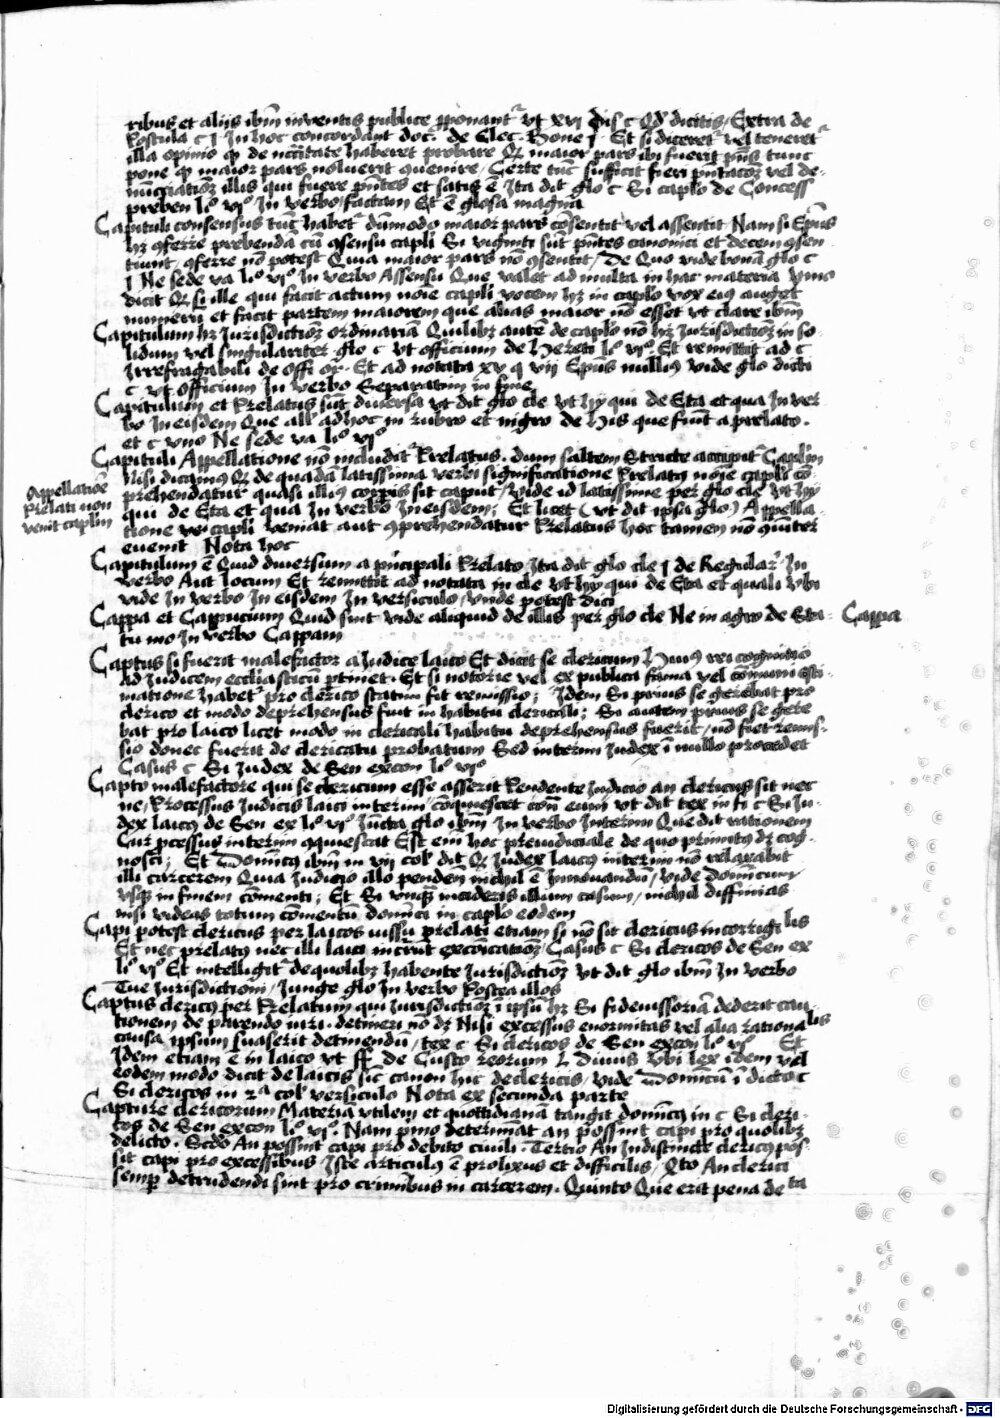 ribus et aliis ibm inventis publice pponant vt xvi dis c Qd dicitis / Extra de
Postula c j In hoc concordant doc. de Elec. Bone j Et si diceret vel teneret
illa opinio qp de ncitate haberet probare Q maior pars ibi fuerit pns tunc
pone qp maior pars noluerit quenire / Certe tuc sufficit fieri pntacoz vel de-
nuncciatioz illis qui fuere pntes et satis e Ita dit glo c Si caplo de Concess
preben li° vj° In verbo / factam Et e glosa magna
Capituli consensus tuc habet dummodo maior pars consentit vel assentit Nam si Epus
hz 9ferre prebenda cu 9sensu capli Si viginti sut pntes canonici et decem 9sen
tiunt / 9ferre no potest Quia maior pars no 9sentit / De Quo vide bona glo c
j Ne sede va li° vj° In verbo Assensu Que valet ad multa in hac materia ymo
dicit Q si ille qui facit actum noie capli vocem hz in caplo vox eius auget
numeru et facit partem maiorem que alias maior no esset vt clare ibm
Capitulum hz Jurisdictioz ordinaria Quilibz aute de caplo no hz Jurisdictioz in so
lidum vel singulariter glo c vt officium de Hereti li° vj° Et remittit ad c
Irrefragabili de offi or. Et ad notata xv q vij Epus nullus vide glo dicti
c vt officium In verbo Separatum in fine
Capitulum et Prelatus sut diversa vt dit glo cle vt hy qui de Eta et qua In ver
bo In eisdem Que all ad hoc in rubro et nigro de His que fiut a prelato.
et c vno Ne sede va li° vj°
Capituli Appellatione no includit Prelatus. dum saltem Stricte accipit Caplm
Nisi dicamus Q de quada latissima verbi significatione Prelatus noie capli co
prehendatur quasi illius corpis sit caput / vide id latissime per glo cle vt hy
qui de Eta et qua In verbo In eisdem; Et licet (vt dit ipsa glo) Appella-
tione vei capli veniat aut 9prehendatur Prelatus hoc tamen no 9uiter
evenit Nota hoc
Appellatioe
Prelati non
venit caplm
Capitulum e Quid diversum a principali Prelato Ita dit glo cle j de Regular In
verbo Aut locum Et remittit ad notata in cle vt hy qui de Eta et quali vbi
vide In verbo In eisdem In versiculo / vnde potest dici
Cappa et Caputium Quid sint vide aliquid de illis per glo cle Ne in agro de Sta-
tu mo In verbo Cappam
Cappa
Captus si fuerit malefactor a Judice laico Et dicit se clericum Huius rei cognitio
ad Judicem ecclesiasticu ptinet. Et si notorie vel ex publica fama vel comuni esti
matione habet pro clerico statim fit remissio; Idem Si prius se gerebat pro
clerico et modo deprehensus fuit in habitu clericali; Si autem prius se gere
bat pro laico licet modo in clericali habitu deprehensus fuerit / no fiet remis-
sio donec fuerit de clericatu probatum Sed interim Judex i nullo procedet
Casus c Si Judex de Sen excon li° vj°
Capto malefactore qui se clericum esse asserit Pendente Judicio an clericus sit nec
ne, Processus Judicis laici interim conquiescet contra eum vt dit tex in fi c Si Ju-
dex laicus de Sen ex li° vj° Juncta glo ibm In verbo Interim Que dit rationem
Cur pcessus interim 9quiescat Est eni hoc preiudiciale de quo primitus dz cog-
nosci; Et Dominicus ibm in vij col dit Q Judex laicus interim no relaxabit
illi carcerem Quia Judicio illo penden nichil e Innovandu / vide Dominicum
vsqz in finem comenti; Et Si vmqz videris illum casum, nichil diffinias
nisi videas totum comentu dominici in caplo eodem
Capi potest clericus per laicos iussu prelati etiam si no sit clericus incorrigibilis
Et nec prelatus nec illi laici incrut excoicatioz / Casus c Si clericos de Sen ex
li° vj° Et intelligit de quolibz habente Jurisdictioz vt dit glo ibm In verbo
Tue Jurisdictioni / Junge glo In verbo Postea illos
Captus clericus per Prelatum qui Jurisdictioz i ipsu hz Si fideiussoria dederit cau-
tionem de parendo iuri. detineri no dz Nisi excessus enormitas vel alia rationalis
causa ipsum suaserit detinendu, tex c Si clericos de Sen excon li° vj° Et
Idem etiam e in laico vt ff de Custo reorum L Divus Vbi lex idem vel
eodem modo dicit de laicis sic canon hic de clericis, vide Dominicu i dicto c
Si clericos in 2a col versiculo Nota ex secunda parte
Capture clericorum Materia vtilem et quottidiana tangit dominicus in c Si cleri-
cos de Sen excon li° vj°. Nam primo determinat an possint capi pro quolibz
delicto. Scdo An possint capi pro debito civili. Tertio An Indistincte clericus pos-
sit capi pro excessibus Iste articulus e prolixus et difficilis / Qto An clerici
semp detrudendi sint pro criminibus in carcerem. Quinto Que erit pena deta
Digitalisierung gefördert durch die Deutsche Forschungsgemeinschaft - DFG